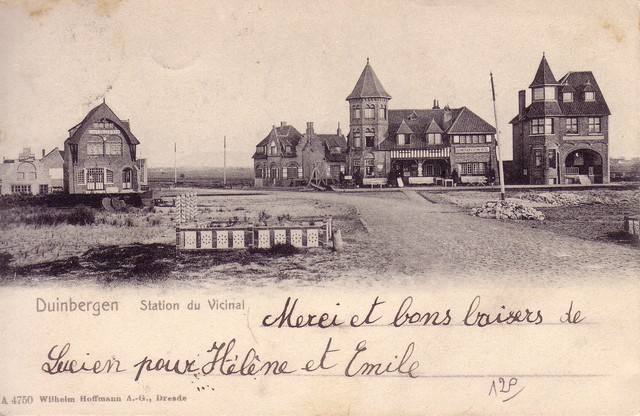 Duinbergen Station du Vicinal
Merci et bons baisers de
Lucien pour Hélène et Emile
A 4750 Wilhelm Hoffmann A.-G., Dresde